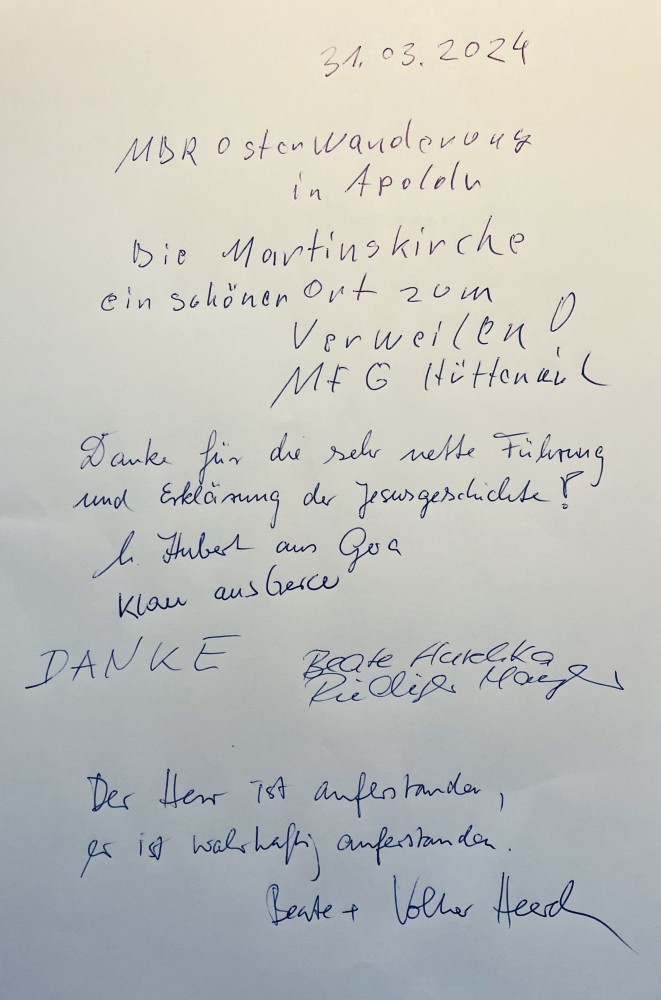 31.03.2024
MBR Osterwanderung
in Apolda
Die Martinskirche
ein schöner Ort zum
Verweilen!
MFG
Danke für die sehr nette Führung
und Erklärung der Jesusgeschichte!
Hubert aus Goa
aus
DANKE Beate
Rüdiger
Der Herr ist auferstanden,
er ist wahrhaftig auferstanden.
Beate + Volker